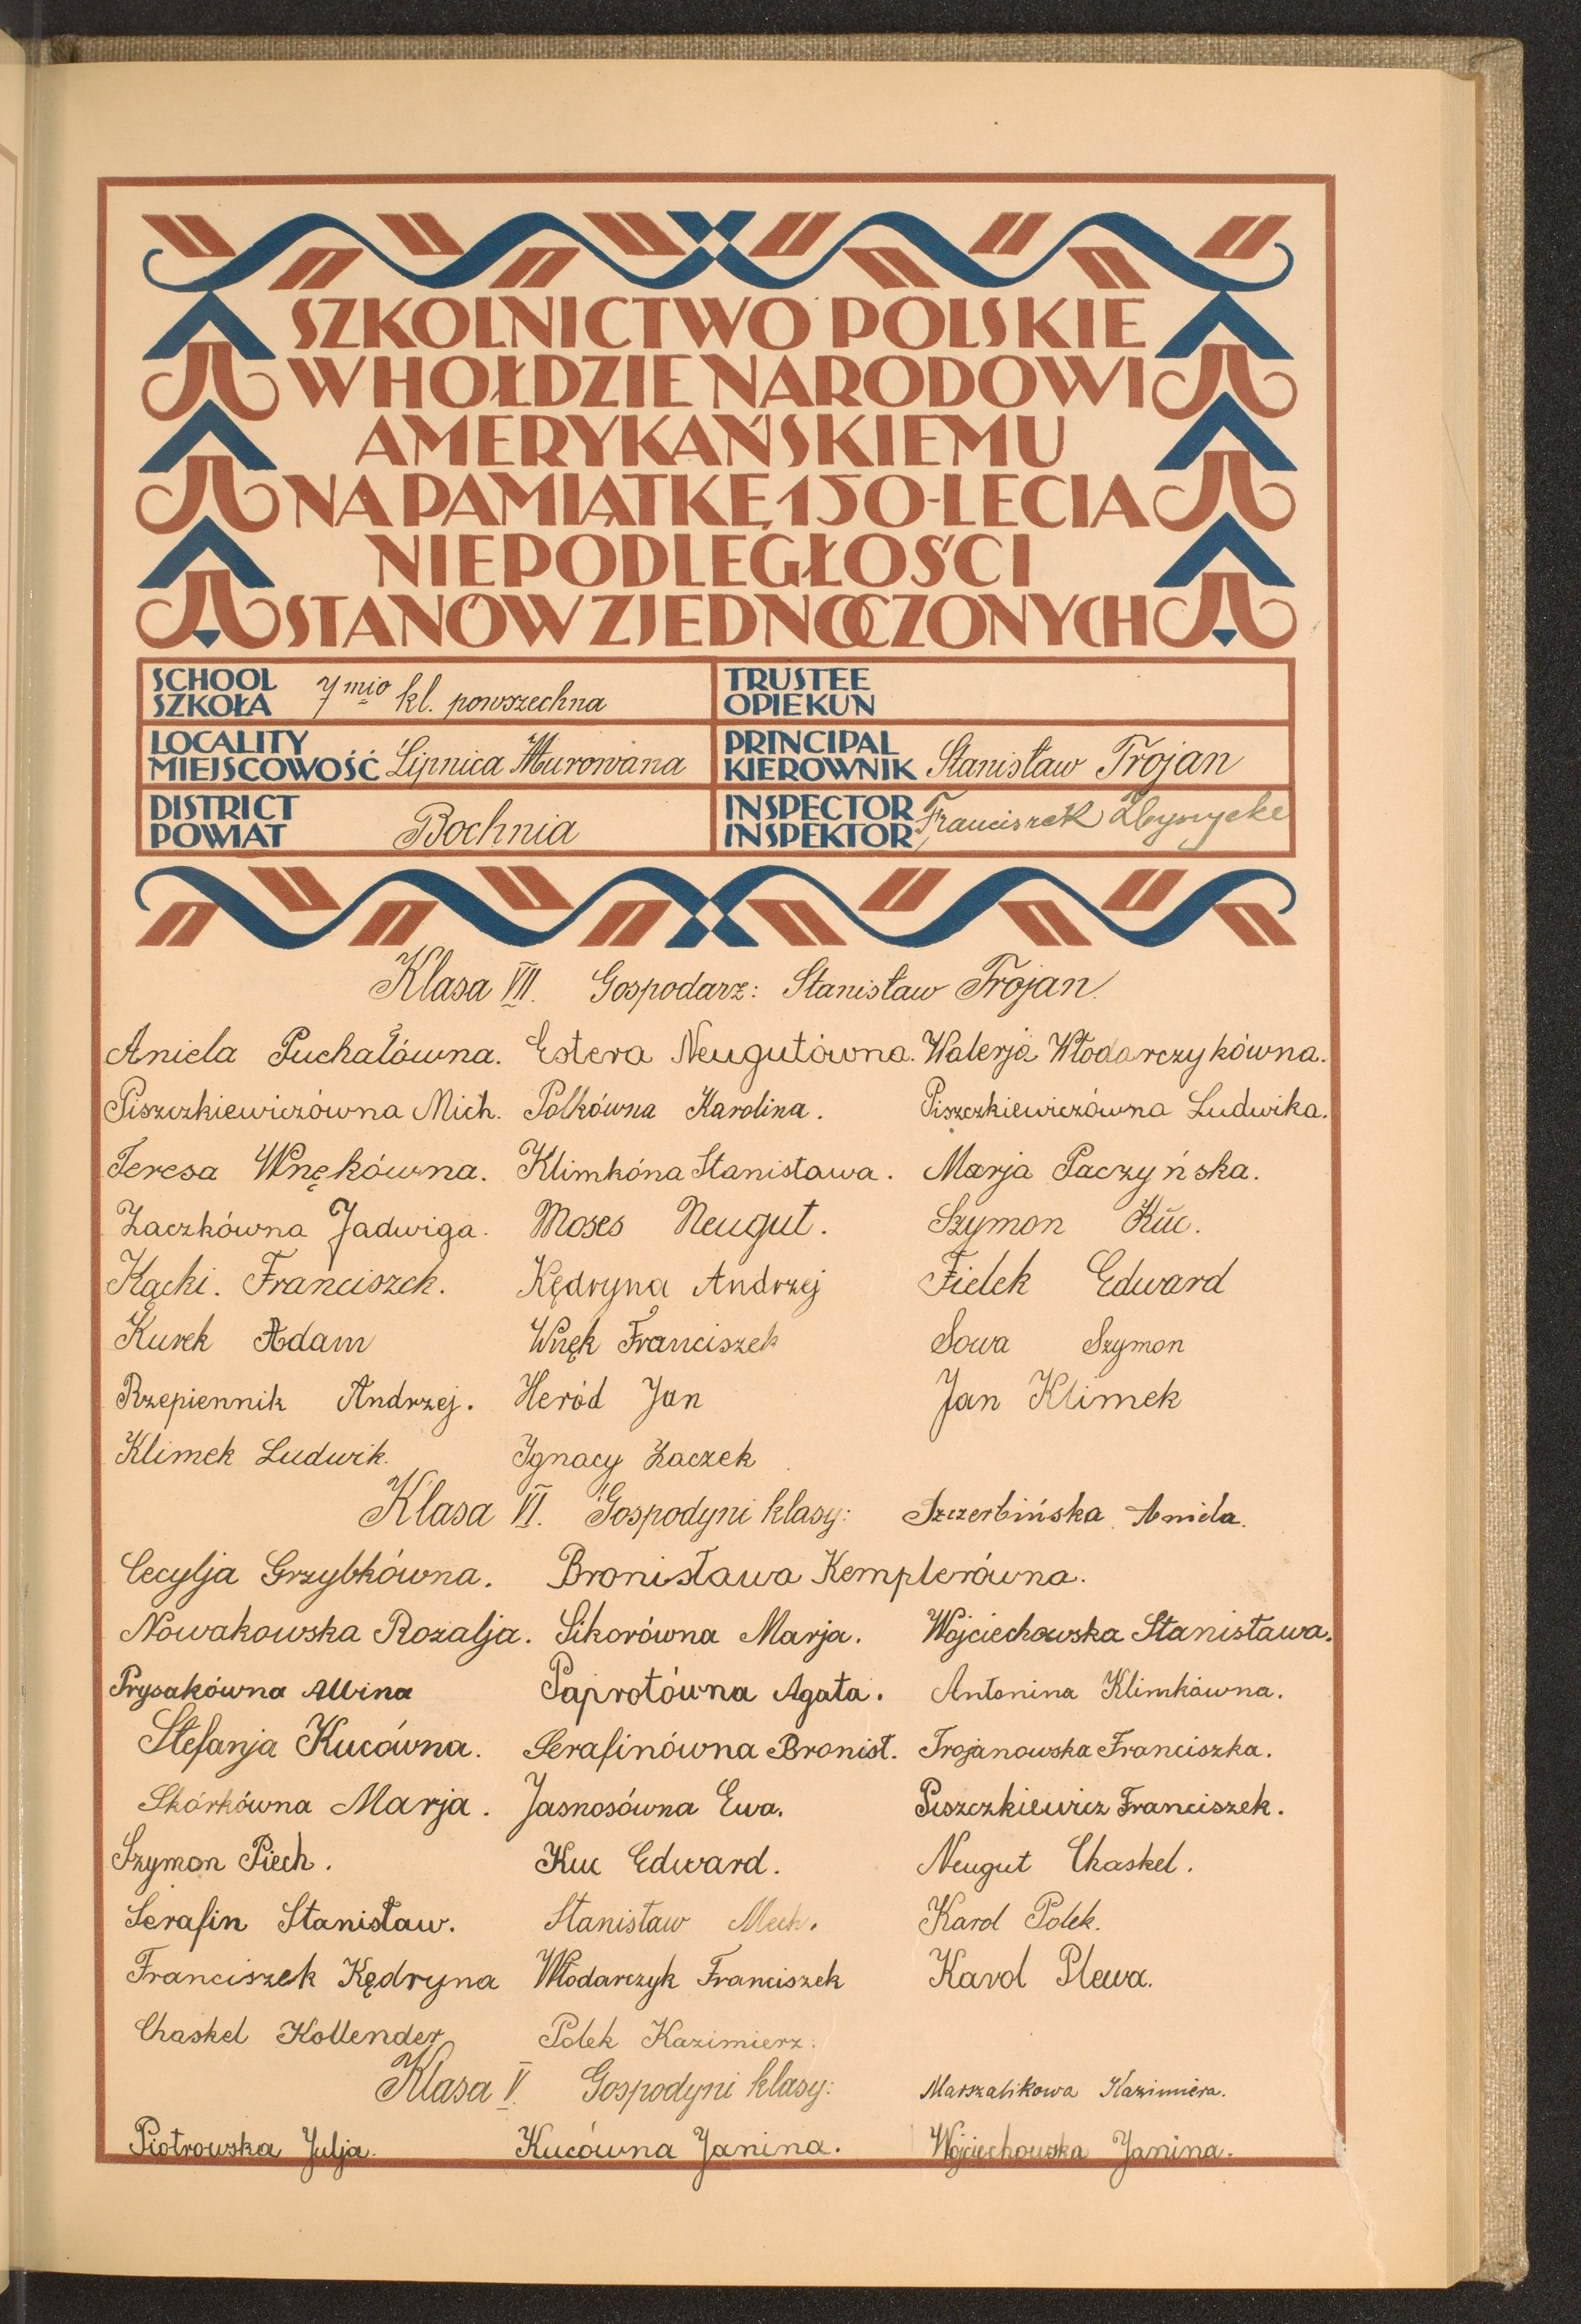 SZKOLNICTWO POLSKIE
W HOŁDZIE NARODOWI
AMERYKAŃSKIEMU
NA PAMIĄTKĘ 150-LECIA
NIEPODLEGŁOŚCI
STANÓW ZJEDNOCZONYCH
SCHOOL
SZKOŁA 7mio kl. powszechna
TRUSTEE
OPIEKUN
LOCALITY
MIEJSCOWOŚĆ Lipnica Murowana
PRINCIPAL
KIEROWNIK Stanisław Trojan
DISTRICT
POWIAT Bochnia
INSPECTOR
INSPEKTOR Franciszek
Klasa VII. Gospodarz: Stanisław Trojan
Aniela Puchałówna. Estera Neugutówna. Walerja Włodarczykówna.
Piszczkiewiczówna Mich. Polkówna Karolina. Piszczkiewiczówna Ludwika.
Teresa Wnękówna. Klimkóna Stanisława. Marja Paczyńska.
Zaczkówna Jadwiga. Moses Neugut. Szymon Kuc.
Kącki. Franciszek. Kędryna Andrzej Fielek Edward
Kurek Adam Wnęk Franciszek Sowa Szymon
Rzepiennik Andrzej. Heród Jan Jan Klimek
Klimek Ludwik. Ignacy Zaczek
Klasa VI. Gospodyni klasy: Szczerbińska Aniela.
Cecylja Grzybkówna. Bronisława Kemplerówna.
Nowakowska Rozalja. Sikorówna Marja. Wojciechowska Stanisława.
Prysakówna Albina Paprotówna Agata. Antonina Klimkówna.
Stefanja Kucówna. Serafinówna Bronisł. Trojanowska Franciszka.
Skórkówna Marja. Jasnosówna Ewa. Piszczkiewicz Franciszek.
Szymon Piech. Kuc Edward. Neugut Chaskel.
Serafin Stanisław. Stanisław Mech. Karol Polek.
Franciszek Kędryna Włodarczyk Franciszek Karol Plewa.
Chaskel Kollender Polek Kazimierz.
Klasa V. Gospodyni klasy: Marszalikowa Kazimiera.
Piotrowska Julja. Kucówna Janina. Wojciechowska Janina.